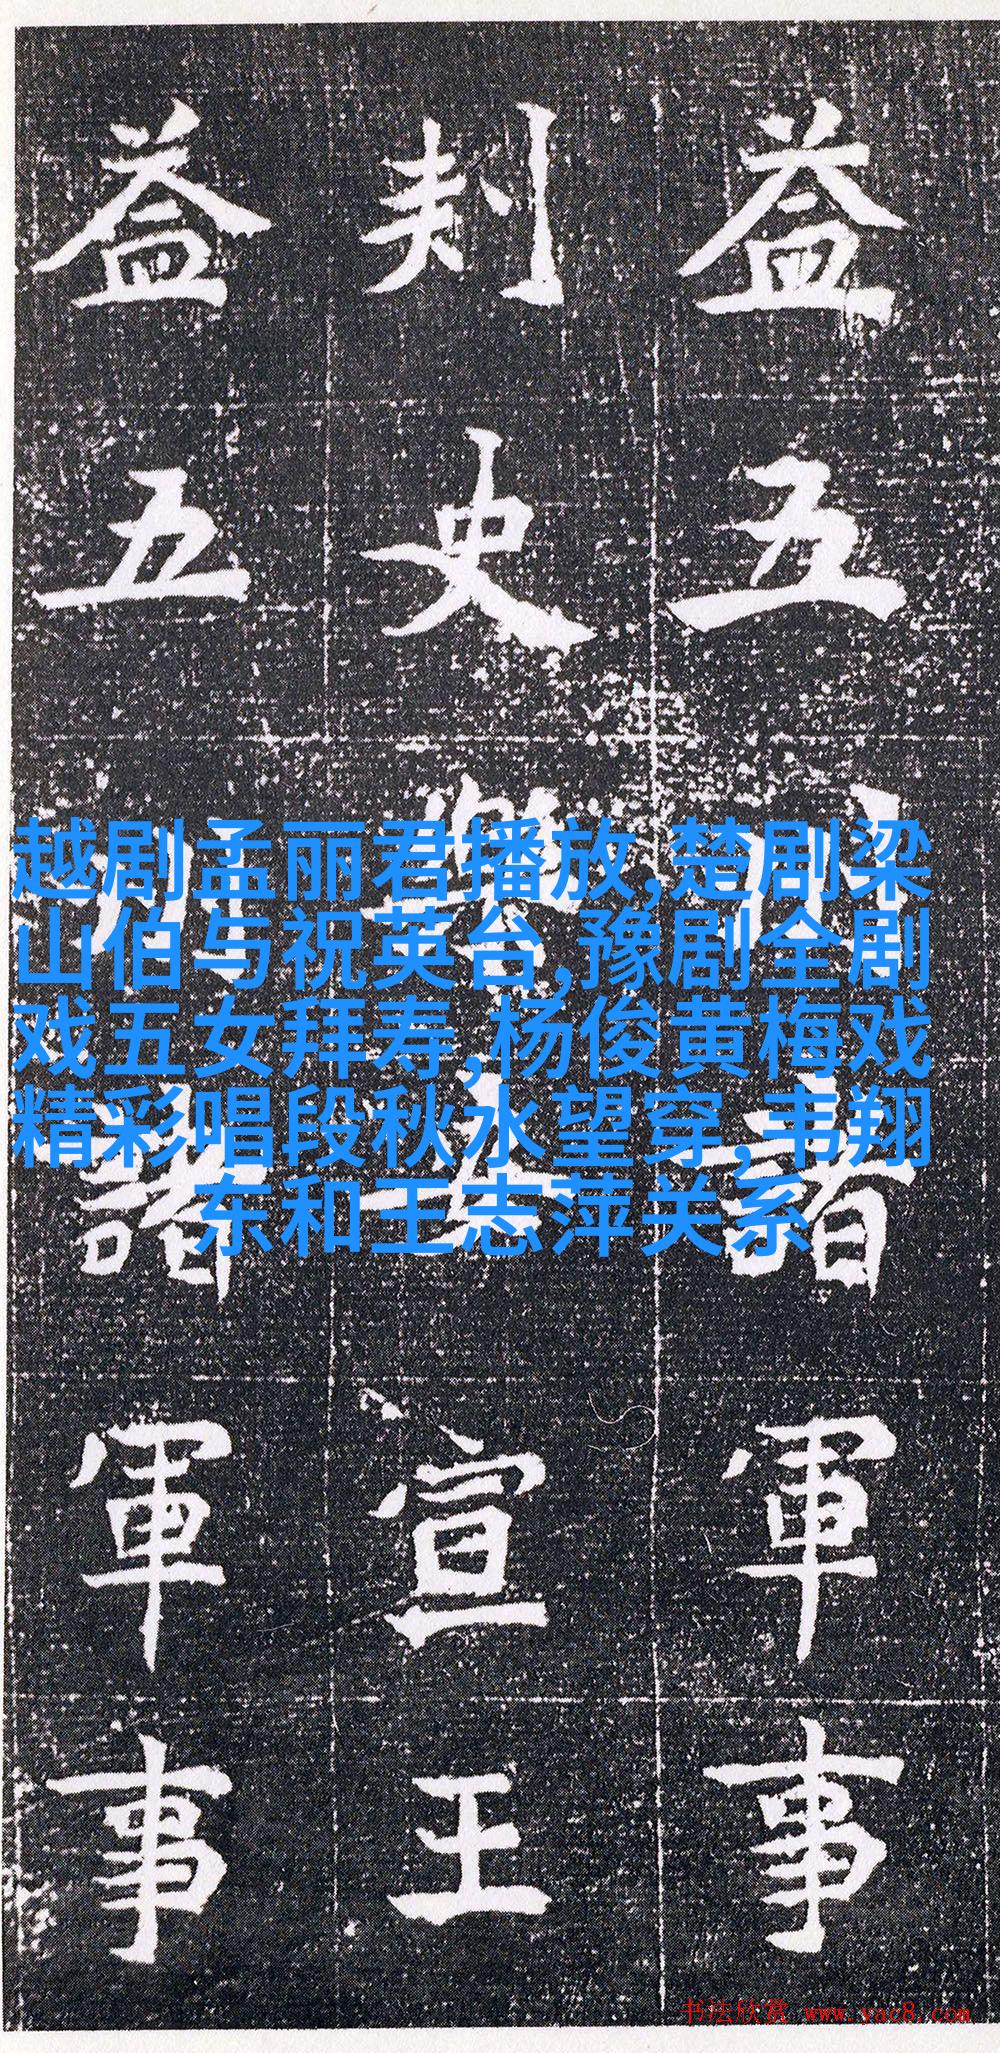 益五州諸軍事
刾史樂安宣王
益五州諸軍事
越剧孟丽君播放,楚剧梁
山伯与祝英台,豫剧全剧
戏五女拜寿,杨俊黄梅戏
精彩唱段秋水望穿, 韦翔
东和王志萍关系
书法欣赏 www.yac8.com